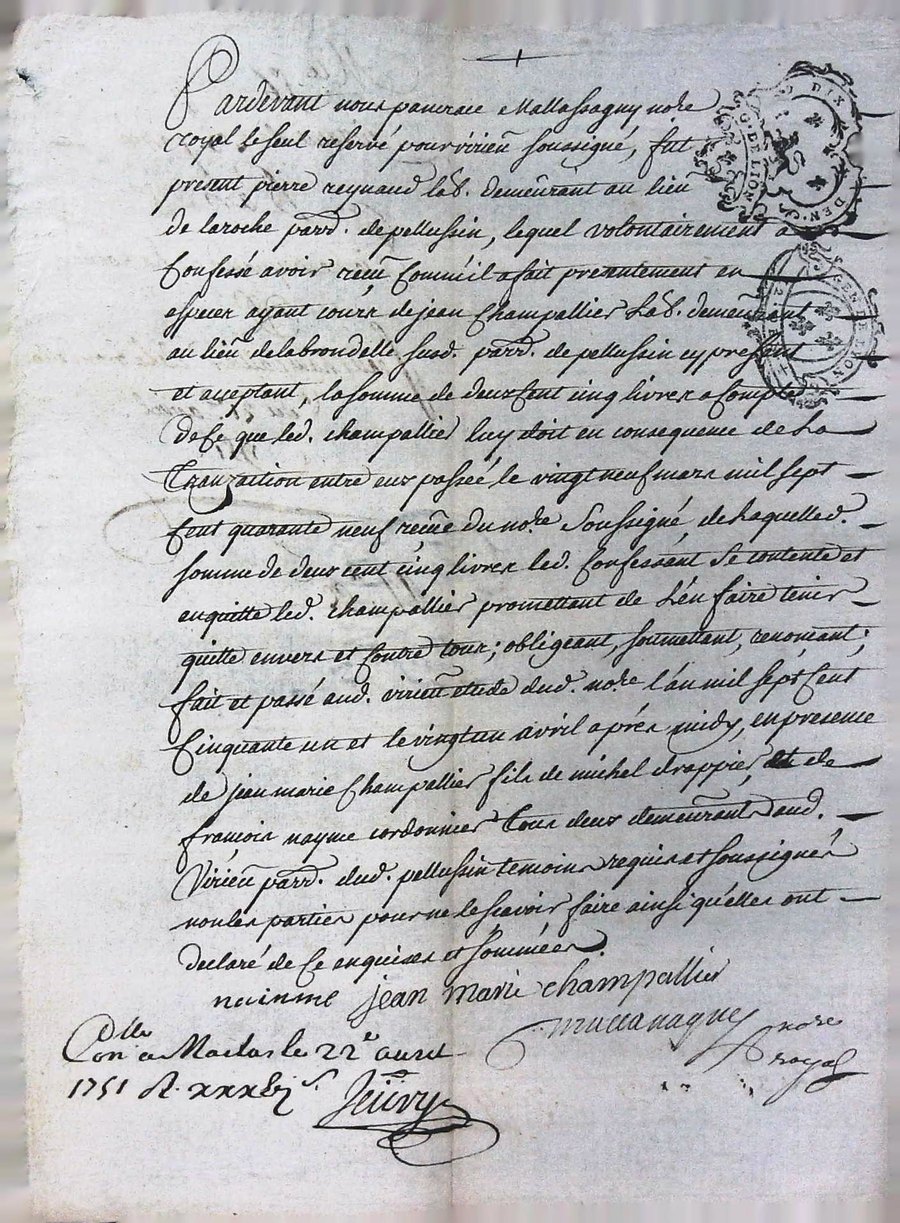 Pardevant nous pancrace Mallassagny no.re
royal le seul reservé pour virieu soussigné, fut
present pierre reynaud lab. demeurant au lieu
de laroche parr. de pellussin, lequel volontairement a
Confessé avoir receu Comme il a fait presentement en
especes ayant cours de jean Champallier Lab. demeurant
au lieu de labrondelle susd. parr. de pellussin cy present
et acceptant, la somme de deux Cent cinq livres a Compte
de Ce que led. champallier luy doit en consequence de La
Tranzaction entre eux passée le vingt neuf mars mil sept
Cent quarante neuf receue du no.re Soussigné, de Laquelle d.
somme de deux cent cinq livres led. Confessant Se contente et
en quitte led. champallier promettant de L'en faire tenir
quitte envers et Contre tous; obligeant, soumettant, renonçant;
fait et passé aud. virieu etude dud. no.re l'an mil sept Cent
Cinquante un et le vingt un avril aprés midy, en presence
de jean marie Champallier fils de michel drappier, et de
françois nayme cordonnier Tous deux demeurants aud.
Virieu parr. dud. pellussin temoins requis et soussignés
non les parties pour ne le scavoir faire ainsi qu'elles ont
declaré de Ce enquises et sommées.
jean marie champallier
no.re
royal
Con.lle a Maclas le 22e avril
1751
DIX DEN.
G. DE LION
GEN DE LION